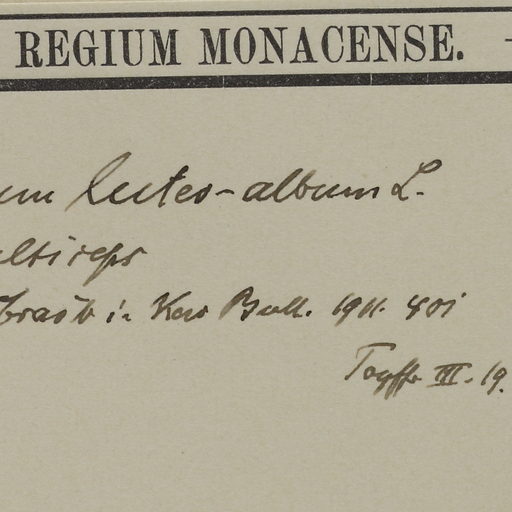 REGIUM MONACENSE.
um luteo-album L.
lticeps
Craib in Kew Bull. 1911. 401
III. 19.